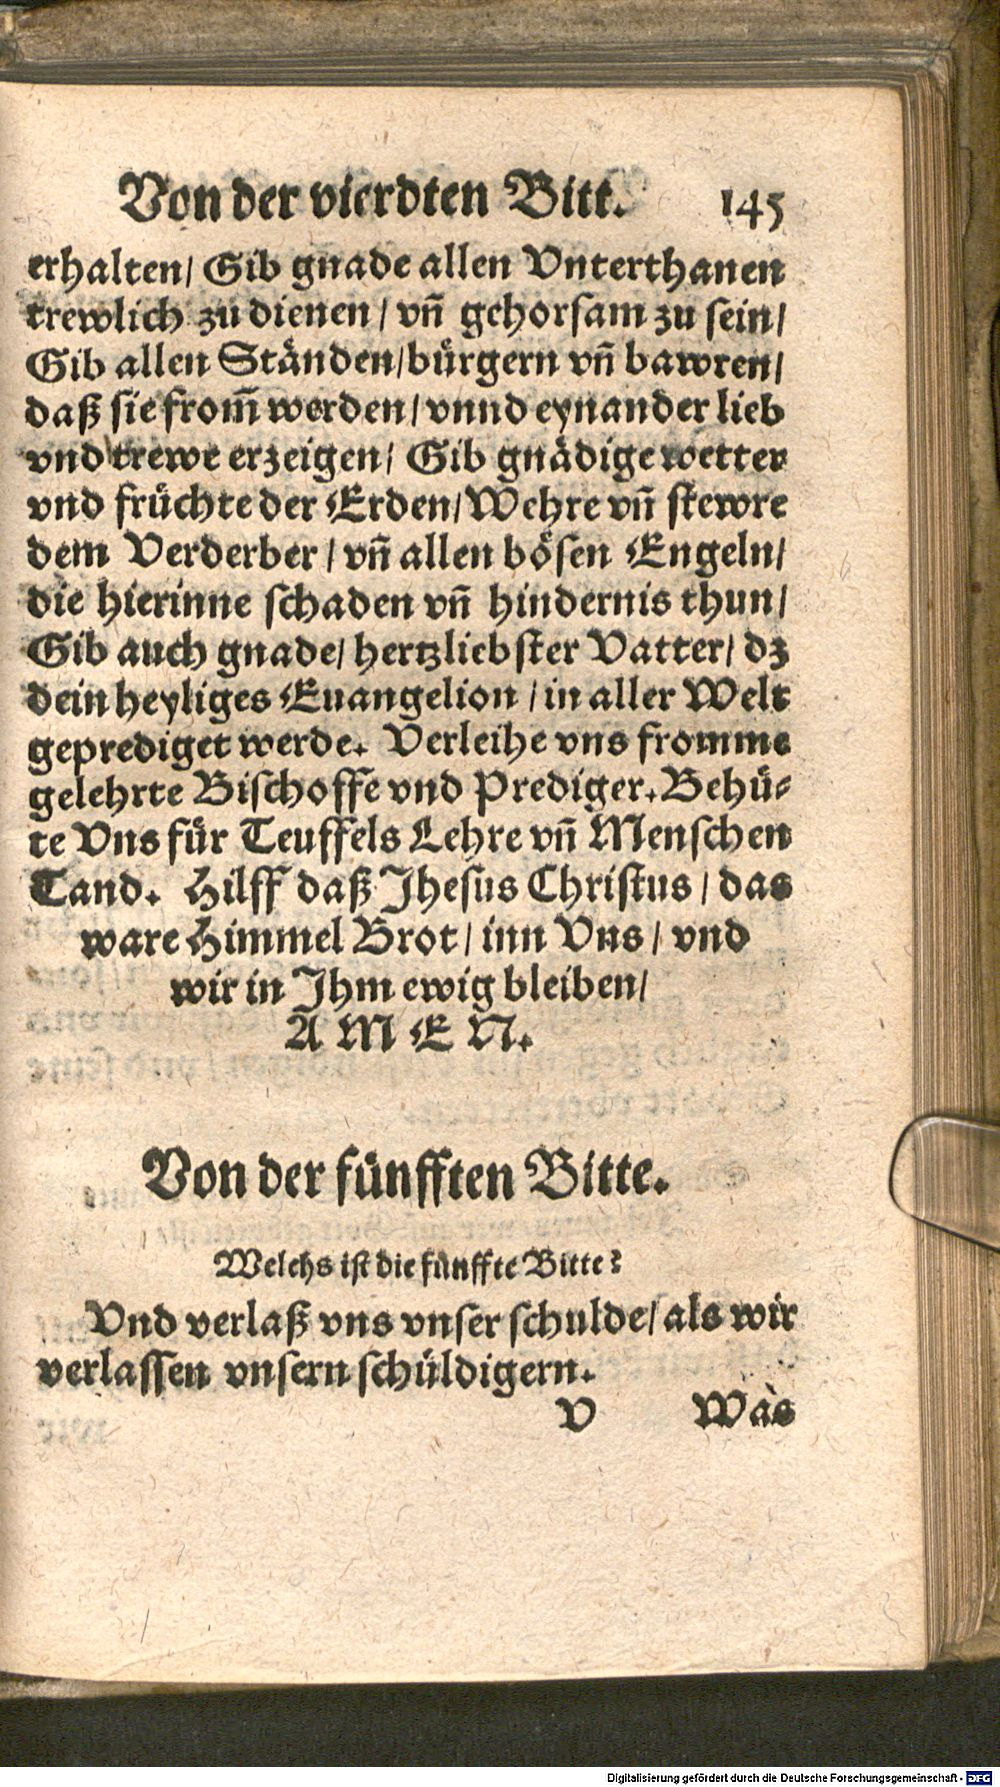 Von der vierdten Bitt. 145
erhalten/ Gib gnade allen Vnterthanen
trewlich zu dienen/ vñ gehorsam zu sein/
Gib allen Ständen/bürgern vñ bawren/
daß sie from̃ werden/ vnnd eynander lieb
vnd trewe erzeigen/ Gib gnädige wetter
vnd früchte der Erden/ Wehre vñ stewre
dem Verderber/ vñ allen bösen Engeln/
die hierinne schaden vñ hindernis thun/
Gib auch gnade/ hertzliebster Vatter/ dz
dein heyliges Euangelion/ in aller Welt
geprediget werde. Verleihe vns fromme
gelehrte Bischoffe vnd Prediger. Behü-
te Vns für Teuffels Lehre vñ Menschen
Tand. Hilff daß Jhesus Christus/ das
ware Himmel Brot/ inn Vns/ vnd
wir in Jhm ewig bleiben/
A M E N.
Von der fünfften Bitte.
Welchs ist die fünffte Bitte?
Vnd verlaß vns vnser schulde/ als wir
verlassen vnsern schüldigern.
V Was
Digitalisierung gefördert durch die Deutsche Forschungsgemeinschaft - DFG